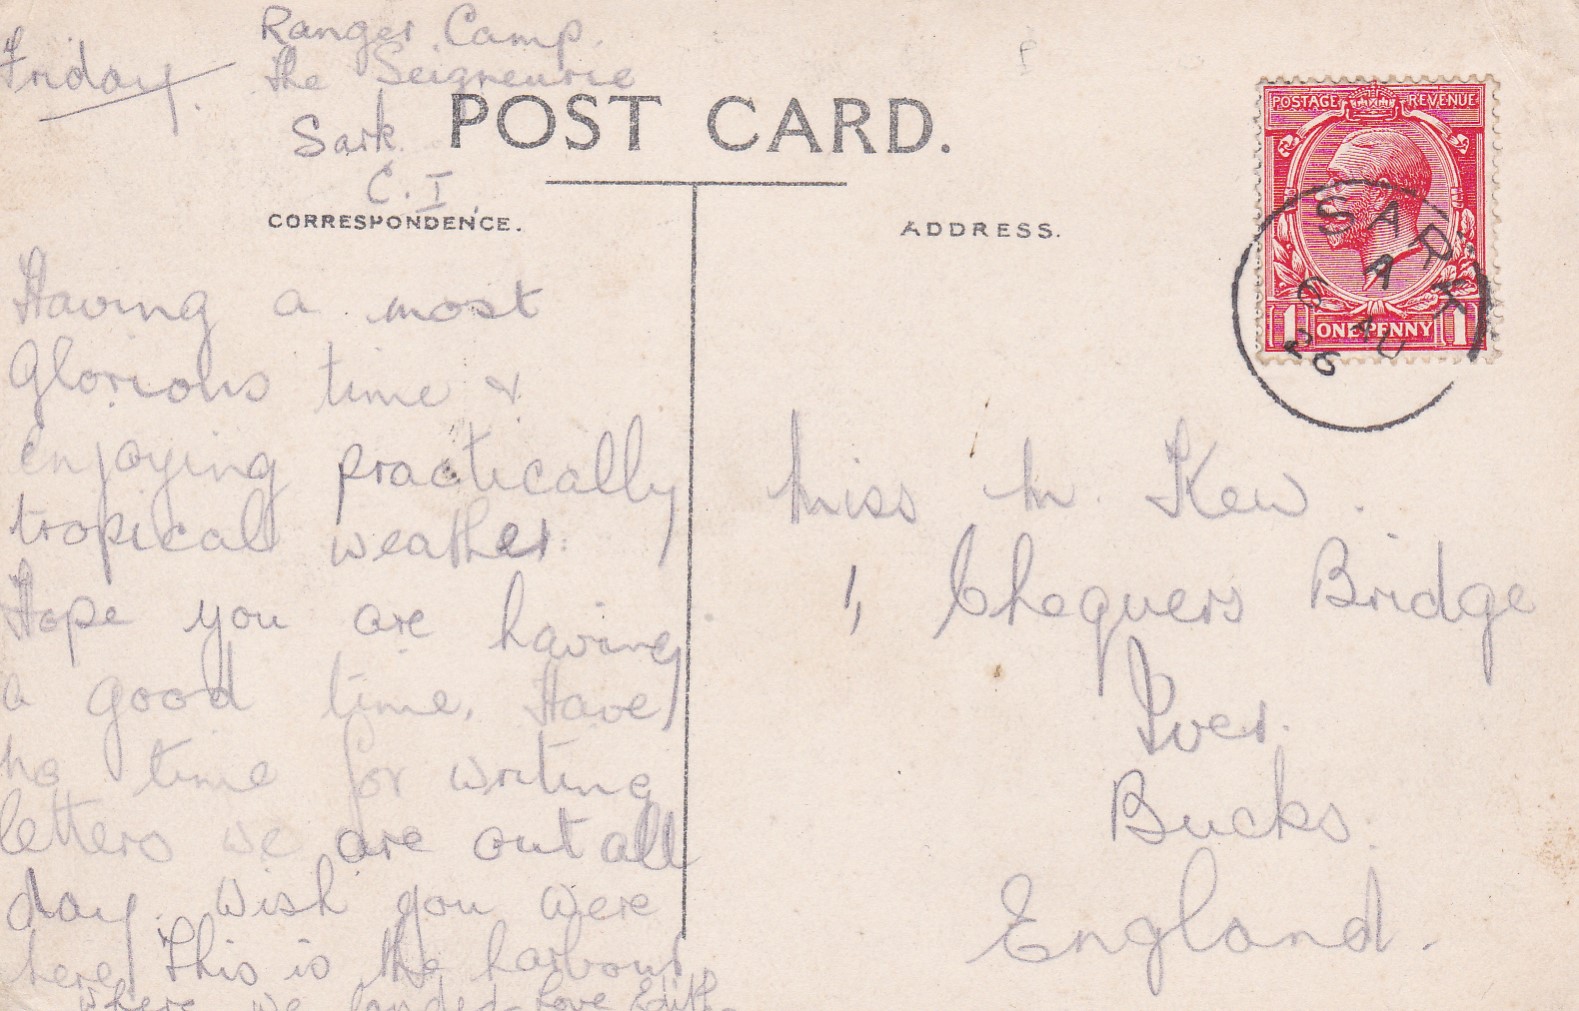 Ranger Camp.
Friday. The Seigneurie
Sark.
C.I
POST CARD.
CORRESPONDENCE.
ADDRESS.
POSTAGE REVENUE
1 ONE PENNY 1
SARK
A
6 AU
26
Having a most
glorious time &
enjoying practically
tropical weather.
Hope you are having
a good time. Have
no time for writing
letters we are out all
day. Wish you were
here. This is the harbour
where we landed - Love Edith -
Miss M. Kew.
1, Chequers Bridge
Iver.
Bucks.
England.